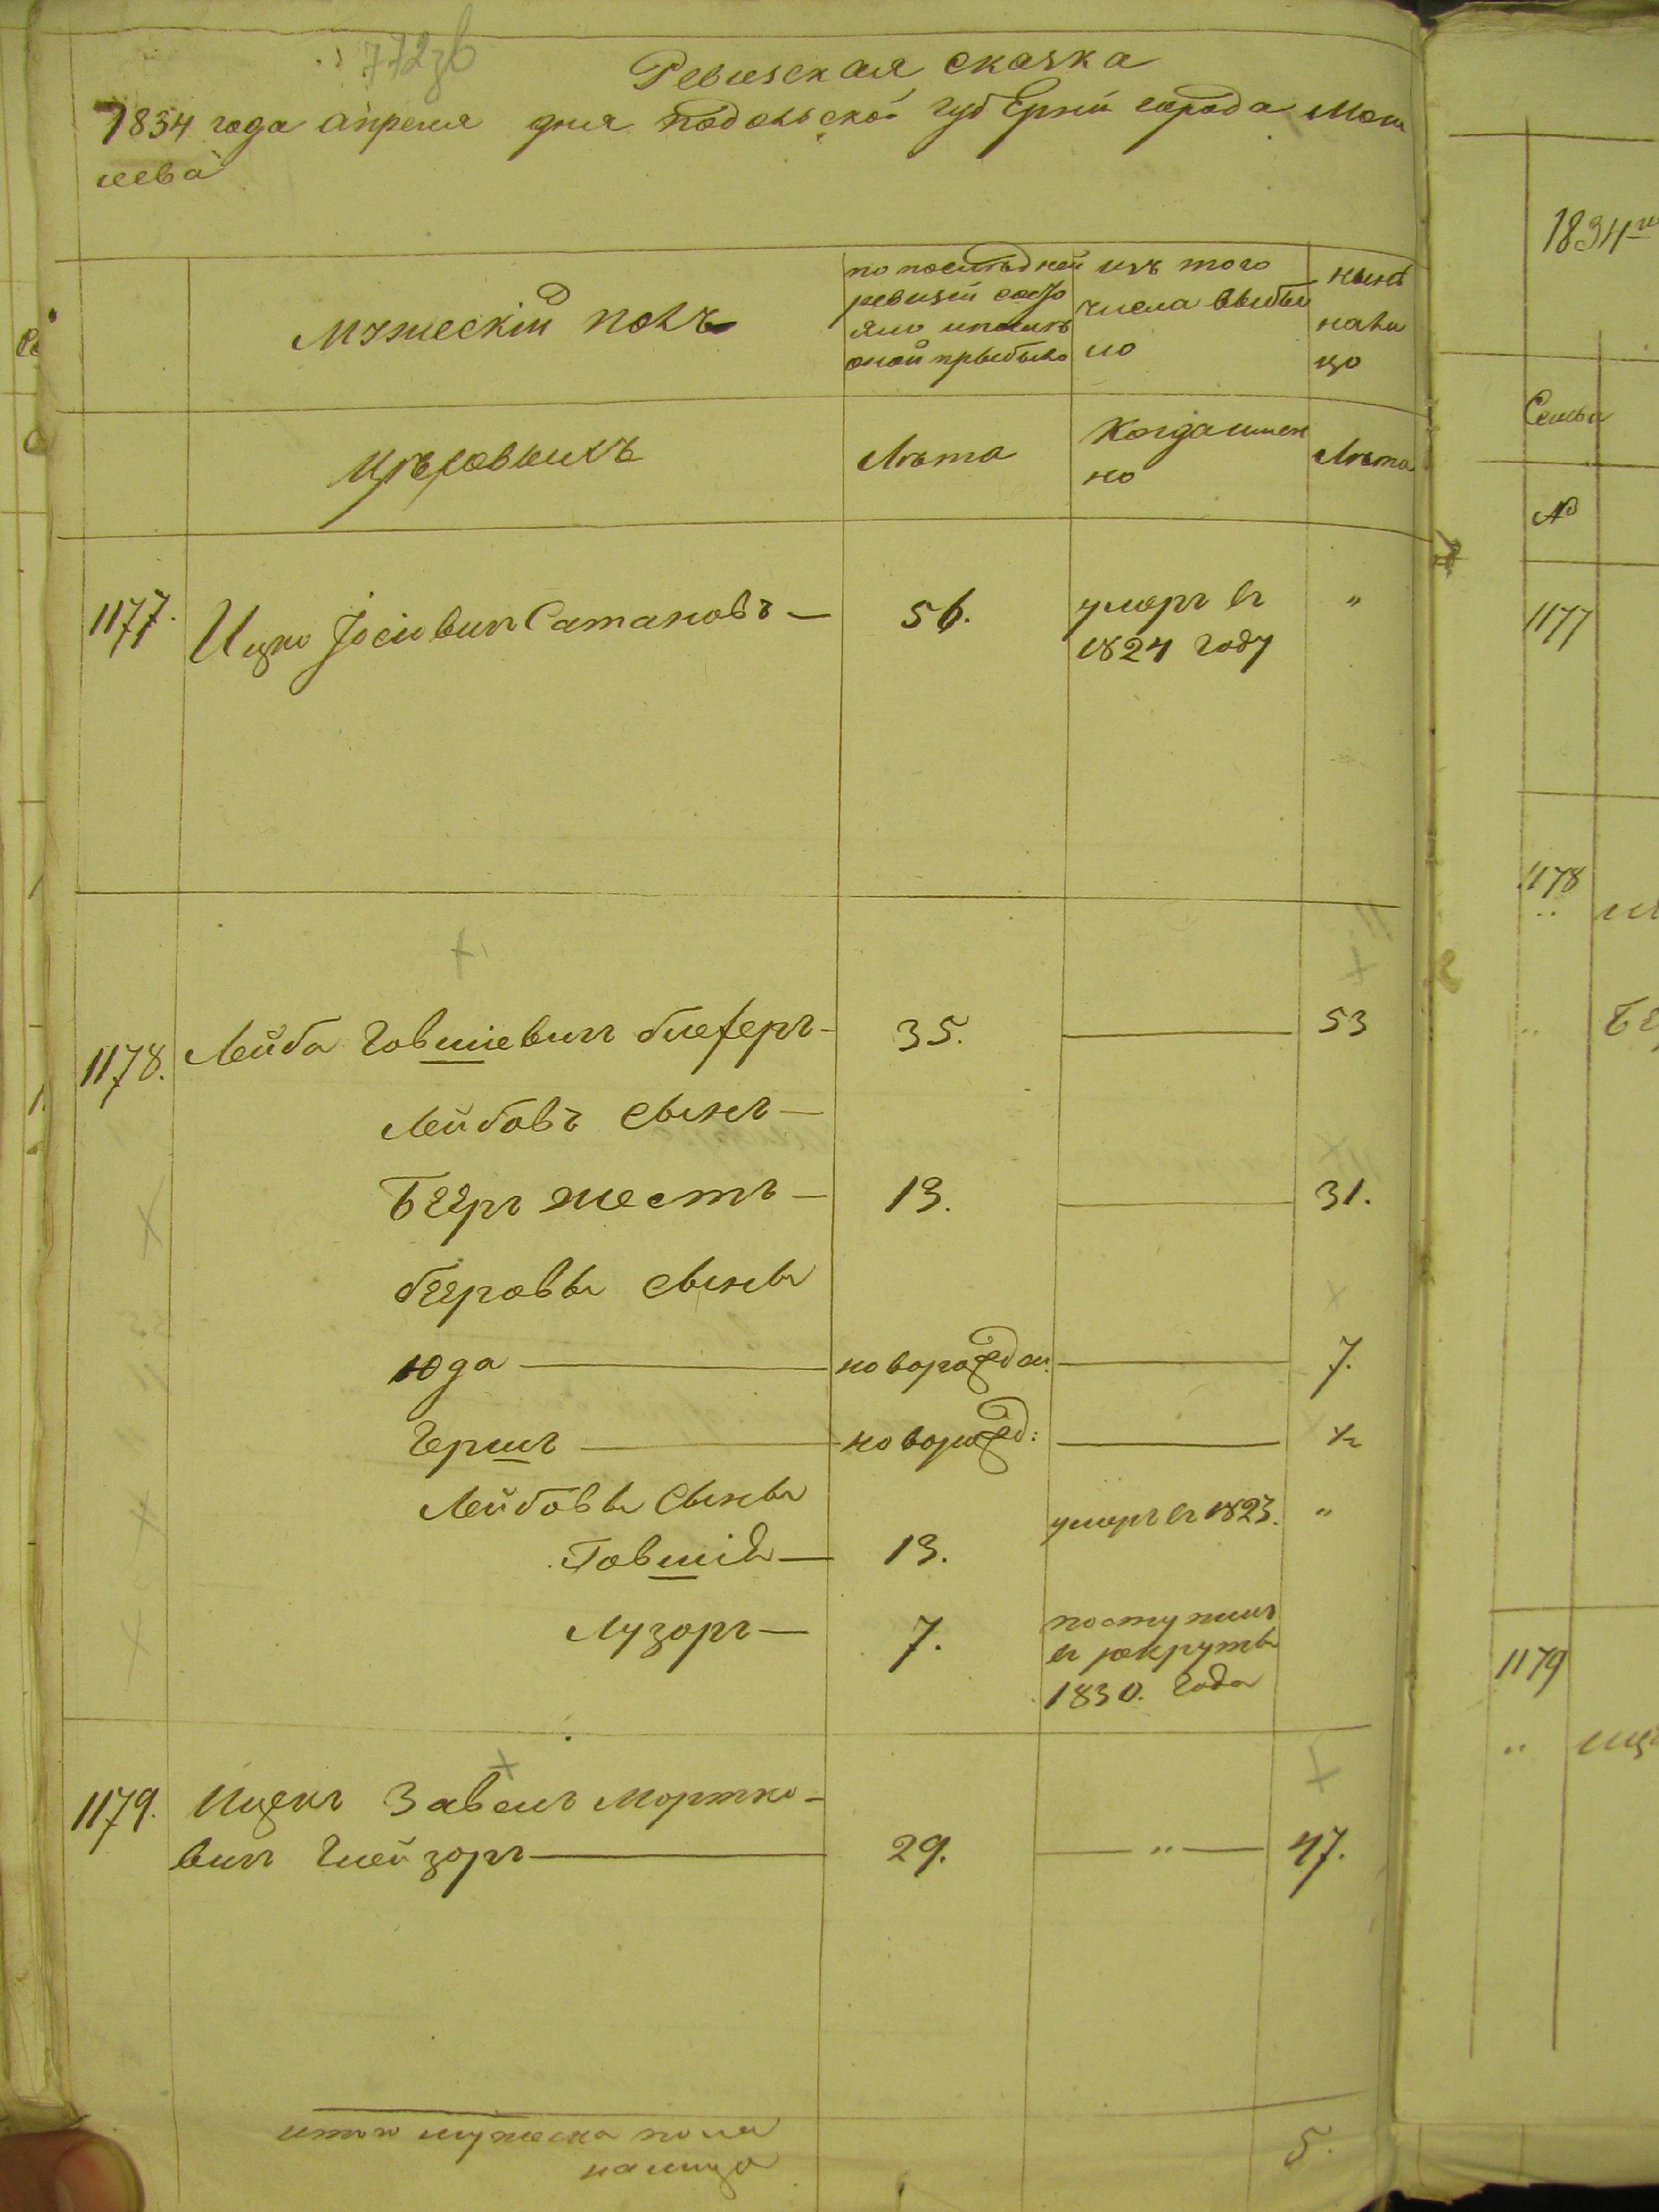 Ревизская сказка
1834 года апреля дня подольской губернии города Моги
лева
Мужеский полъ
по последней
ревизии состо
яло и после
оной прыбыло
изъ того
числа выбы
ло
ныне
нали
цо
Лъта
Когда имен
но
Лъта
1177. Ицко Іосіовичъ Сатановъ — 56. умеръ въ "
1824 году
1178. Лейба Говшіевичъ 35. 53
Лейбовъ сынъ —
Бееръ — 13. 31.
бееровы сыны
Юда — новорожден. 7.
Гершъ — новорожд: ½
Лейбовы сыны
Говшія — 13. умеръ въ 1823. "
Лузоръ — 7. поступилъ
въ рекруты
1830. Года
1179. Ицекъ Завелъ Мортко-
вичъ Глейзоръ — 29. — " — 47.
итого мужеска пола 5.
налицо
1834
Семьи
№
1177
1178
1179